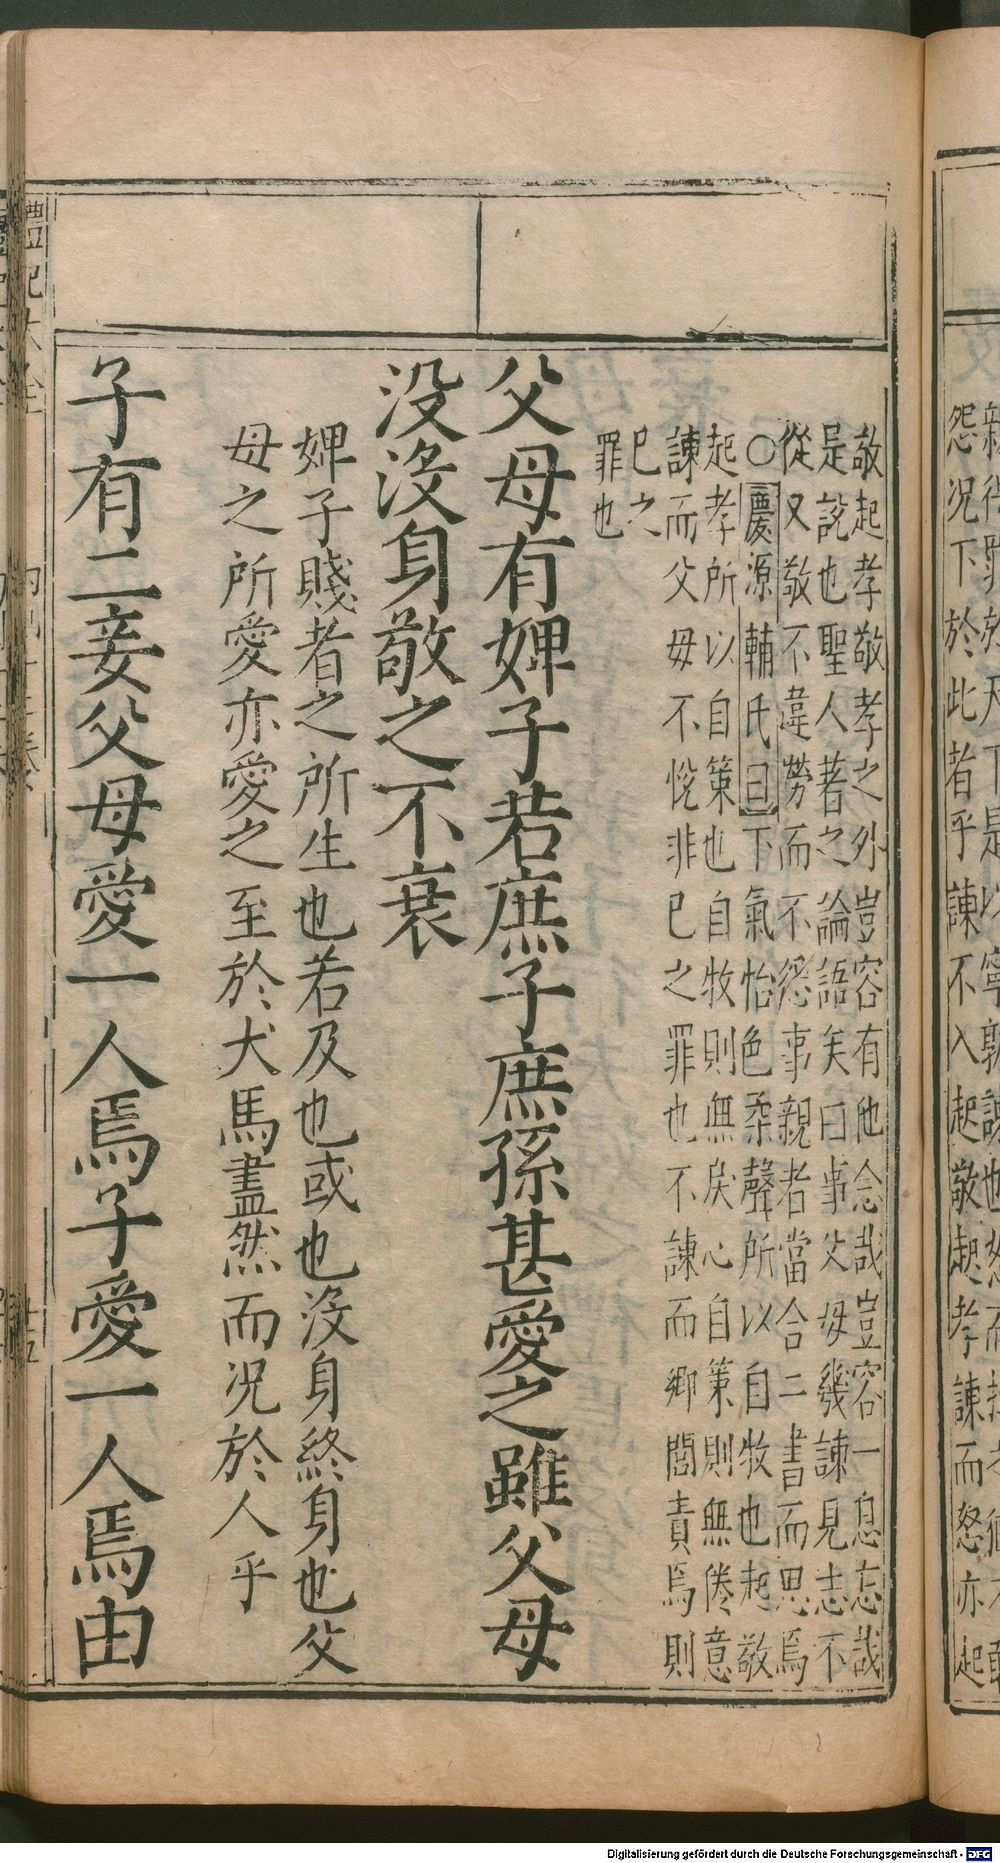 敬起孝敬孝之外豈容有他念哉豈容一息忘哉
是說也聖人著之論語矣曰事父母幾諫見志不
從又敬不違勞而不怨事親者當合二書而思焉
○慶源輔氏曰下氣怡色柔聲所以自牧也起敬
起孝所以自策也自牧則無戾心自策則無倦意
諫而父母不悅非已之罪也不諫而鄉閭責焉則
已之
罪也
父母有婢子若庶子庶孫甚愛之雖父母
没沒身敬之不衰
婢子賤者之所生也若及也或也沒身終身也父
母之所愛亦愛之至於犬馬盡然而况於人乎
子有二妾父母愛一人焉子愛一人焉由
怨况下於此者乎諫不入起敬起孝諫而怒亦起
禮記大全
廿五
Digitalisierung gefördert durch die Deutsche Forschungsgemeinschaft - DFG